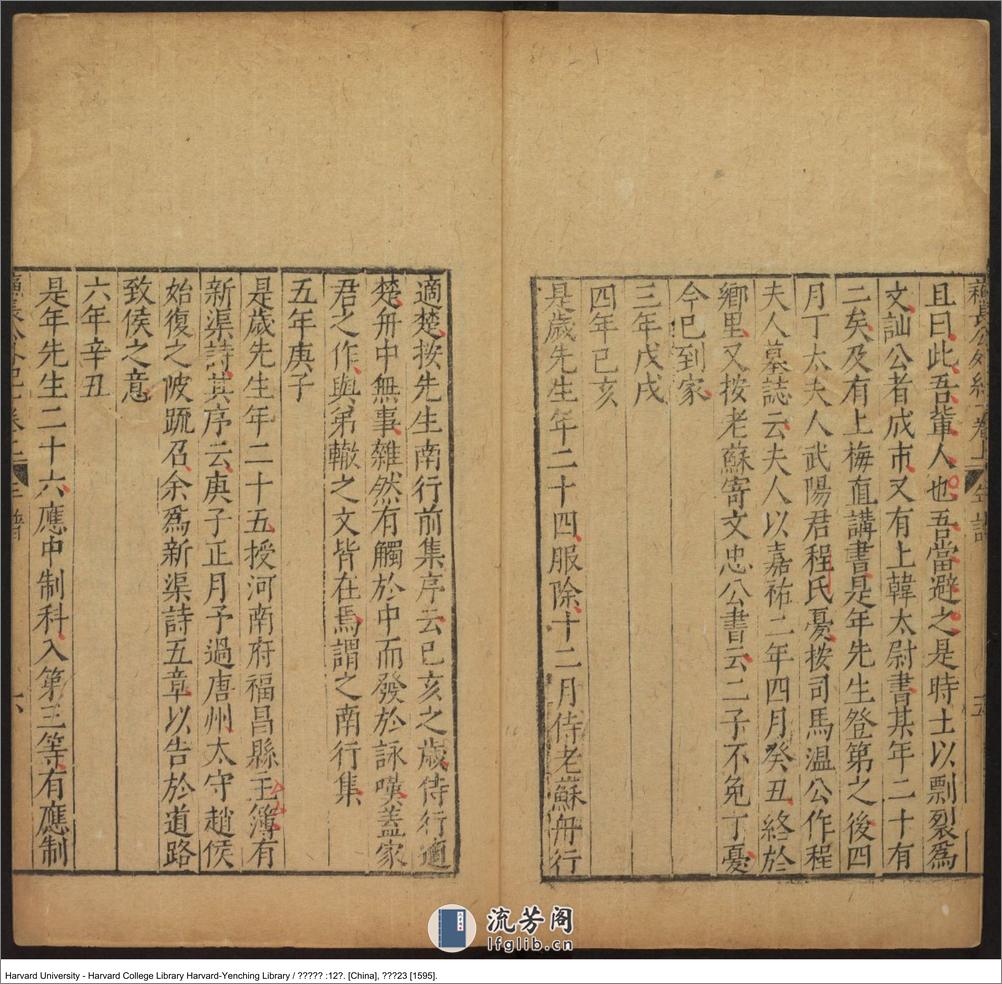 蘇長公外紀卷上 年譜 五
且曰此吾輩人也吾當避之是時士以剽裂爲
文訕公者成市又有上韓太尉書某年二十有
二矣及有上梅直講書是年先生登第之後四
月丁太夫人武陽君程氏憂按司馬温公作程
夫人墓誌云夫人以嘉祐二年四月癸丑終於
鄉里又按老蘇寄文忠公書云二子不免丁憂
今已到家
三年戊戌
四年已亥
是歲先生年二十四服除十二月侍老蘇舟行
適楚按先生南行前集序云已亥之歲侍行適
楚舟中無事雜然有觸於中而發於詠嘆蓋家
君之作與弟轍之文皆在焉謂之南行集
五年庚子
是歲先生年二十五授河南府福昌縣主簿有
新渠詩其序云庚子正月予過唐州太守趙侯
始復之陂疏召余爲新渠詩五章以告於道路
致侯之意
六年辛丑
是年先生二十六應中制科入第三等有應制
六
流芳阁
lfglib.cn
Harvard University - Harvard College Library Harvard-Yenching Library / ????? :12?. [China], ???23 [1595].